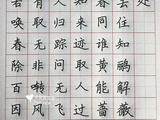 若有人知春去处
唤取归来同住
春无踪迹谁知
除非问取黄鹂
百啭无人能解
因风飞过蔷薇